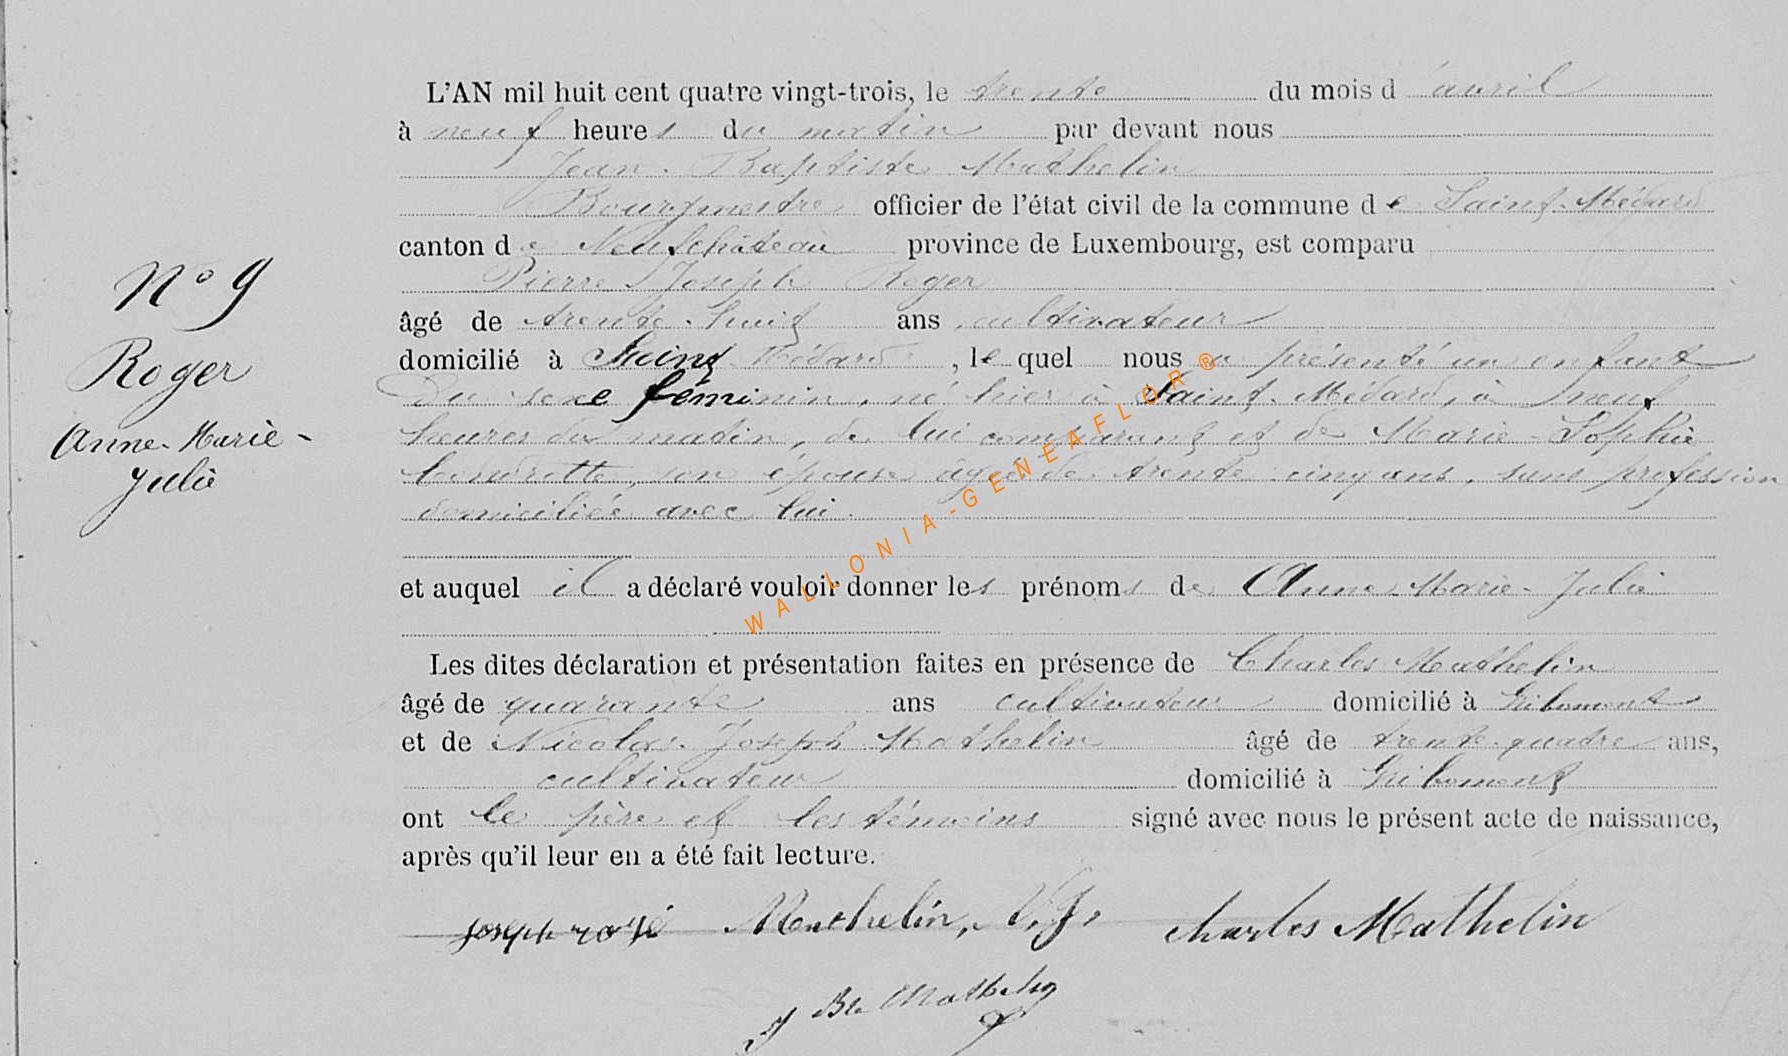 L'AN mil huit cent quatre vingt-trois, le trente du mois d'avril
à neuf heures du matin par devant nous
Jean-Baptiste Mathelin
Bourgmestre officier de l'état civil de la commune de Saint-Médard
canton de Neufchâteau province de Luxembourg, est comparu
Pierre Joseph Roger
âgé de trente-huit ans, cultivateur
domicilié à Saint-Médard, lequel nous a présenté un enfant
du sexe féminin, né hier à Saint-Médard, à neuf
heures du matin, de lui comparant et de Marie-Sophie
son épouse âgée de trente cinq ans, sans profession
domiciliée avec lui.
et auquel il a déclaré vouloir donner les prénoms de Anne-Marie-Julie
Les dites déclaration et présentation faites en présence de Charles Mathelin
âgé de quarante ans cultivateur domicilié à Gribomont
et de Nicolas-Joseph Mathelin âgé de trente-quatre ans,
cultivateur domicilié à Gribomont
ont le père et les témoins signé avec nous le présent acte de naissance,
après qu'il leur en a été fait lecture.
Nº 9
Roger
Anne-Marie-
Julie
Joseph Mathelin, N.J. Charles Mathelin
J Bte Mathelin
WALLONIA-GENEAFLOR®